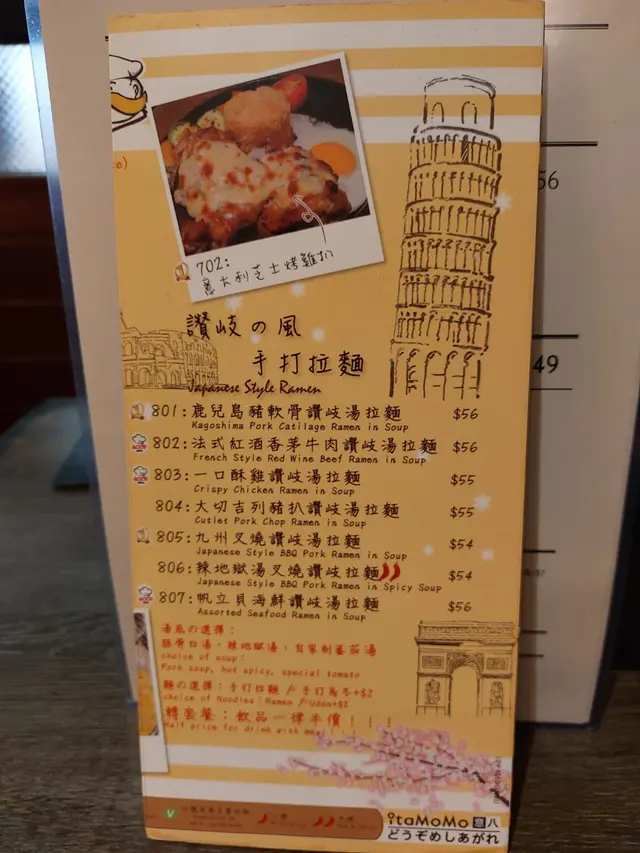 702:
意大利芝士烤雞扒
讚岐の風
手打拉麵
Japanese Style Ramen
801: 鹿兒島豬軟骨讚岐湯拉麵 $56
Kagoshima Pork Catilage Ramen in Soup
802: 法式紅酒香茅牛肉讚岐湯拉麵 $56
French Style Red Wine Beef Ramen in Soup
803: 一口酥雞讚岐湯拉麵 $55
Crispy Chicken Ramen in Soup
804: 大切吉列豬扒讚岐湯拉麵 $55
Cutlet Pork Chop Ramen in Soup
805: 九州叉燒讚岐湯拉麵 $54
Japanese Style BBQ Pork Ramen in Soup
806: 辣地獄湯叉燒讚岐湯拉麵 $54
Japanese Style BBQ Pork Ramen in Spicy Soup
807: 帆立貝海鮮讚岐湯拉麵 $56
Assorted Seafood Ramen in Soup
湯底の選擇：
豚骨白湯，辣地獄湯，自家制蕃茄湯
choice of soup:
Pork soup, hot spicy, special tomato
麵の選擇：手打拉麵 / 手打烏冬+$2
choice of Noodles: Ramen / Udon+$2
轉套餐：飲品一律半價！！！
Half price for drink with meal
itaMoMo 意八
どうぞめしあがれ
56
49